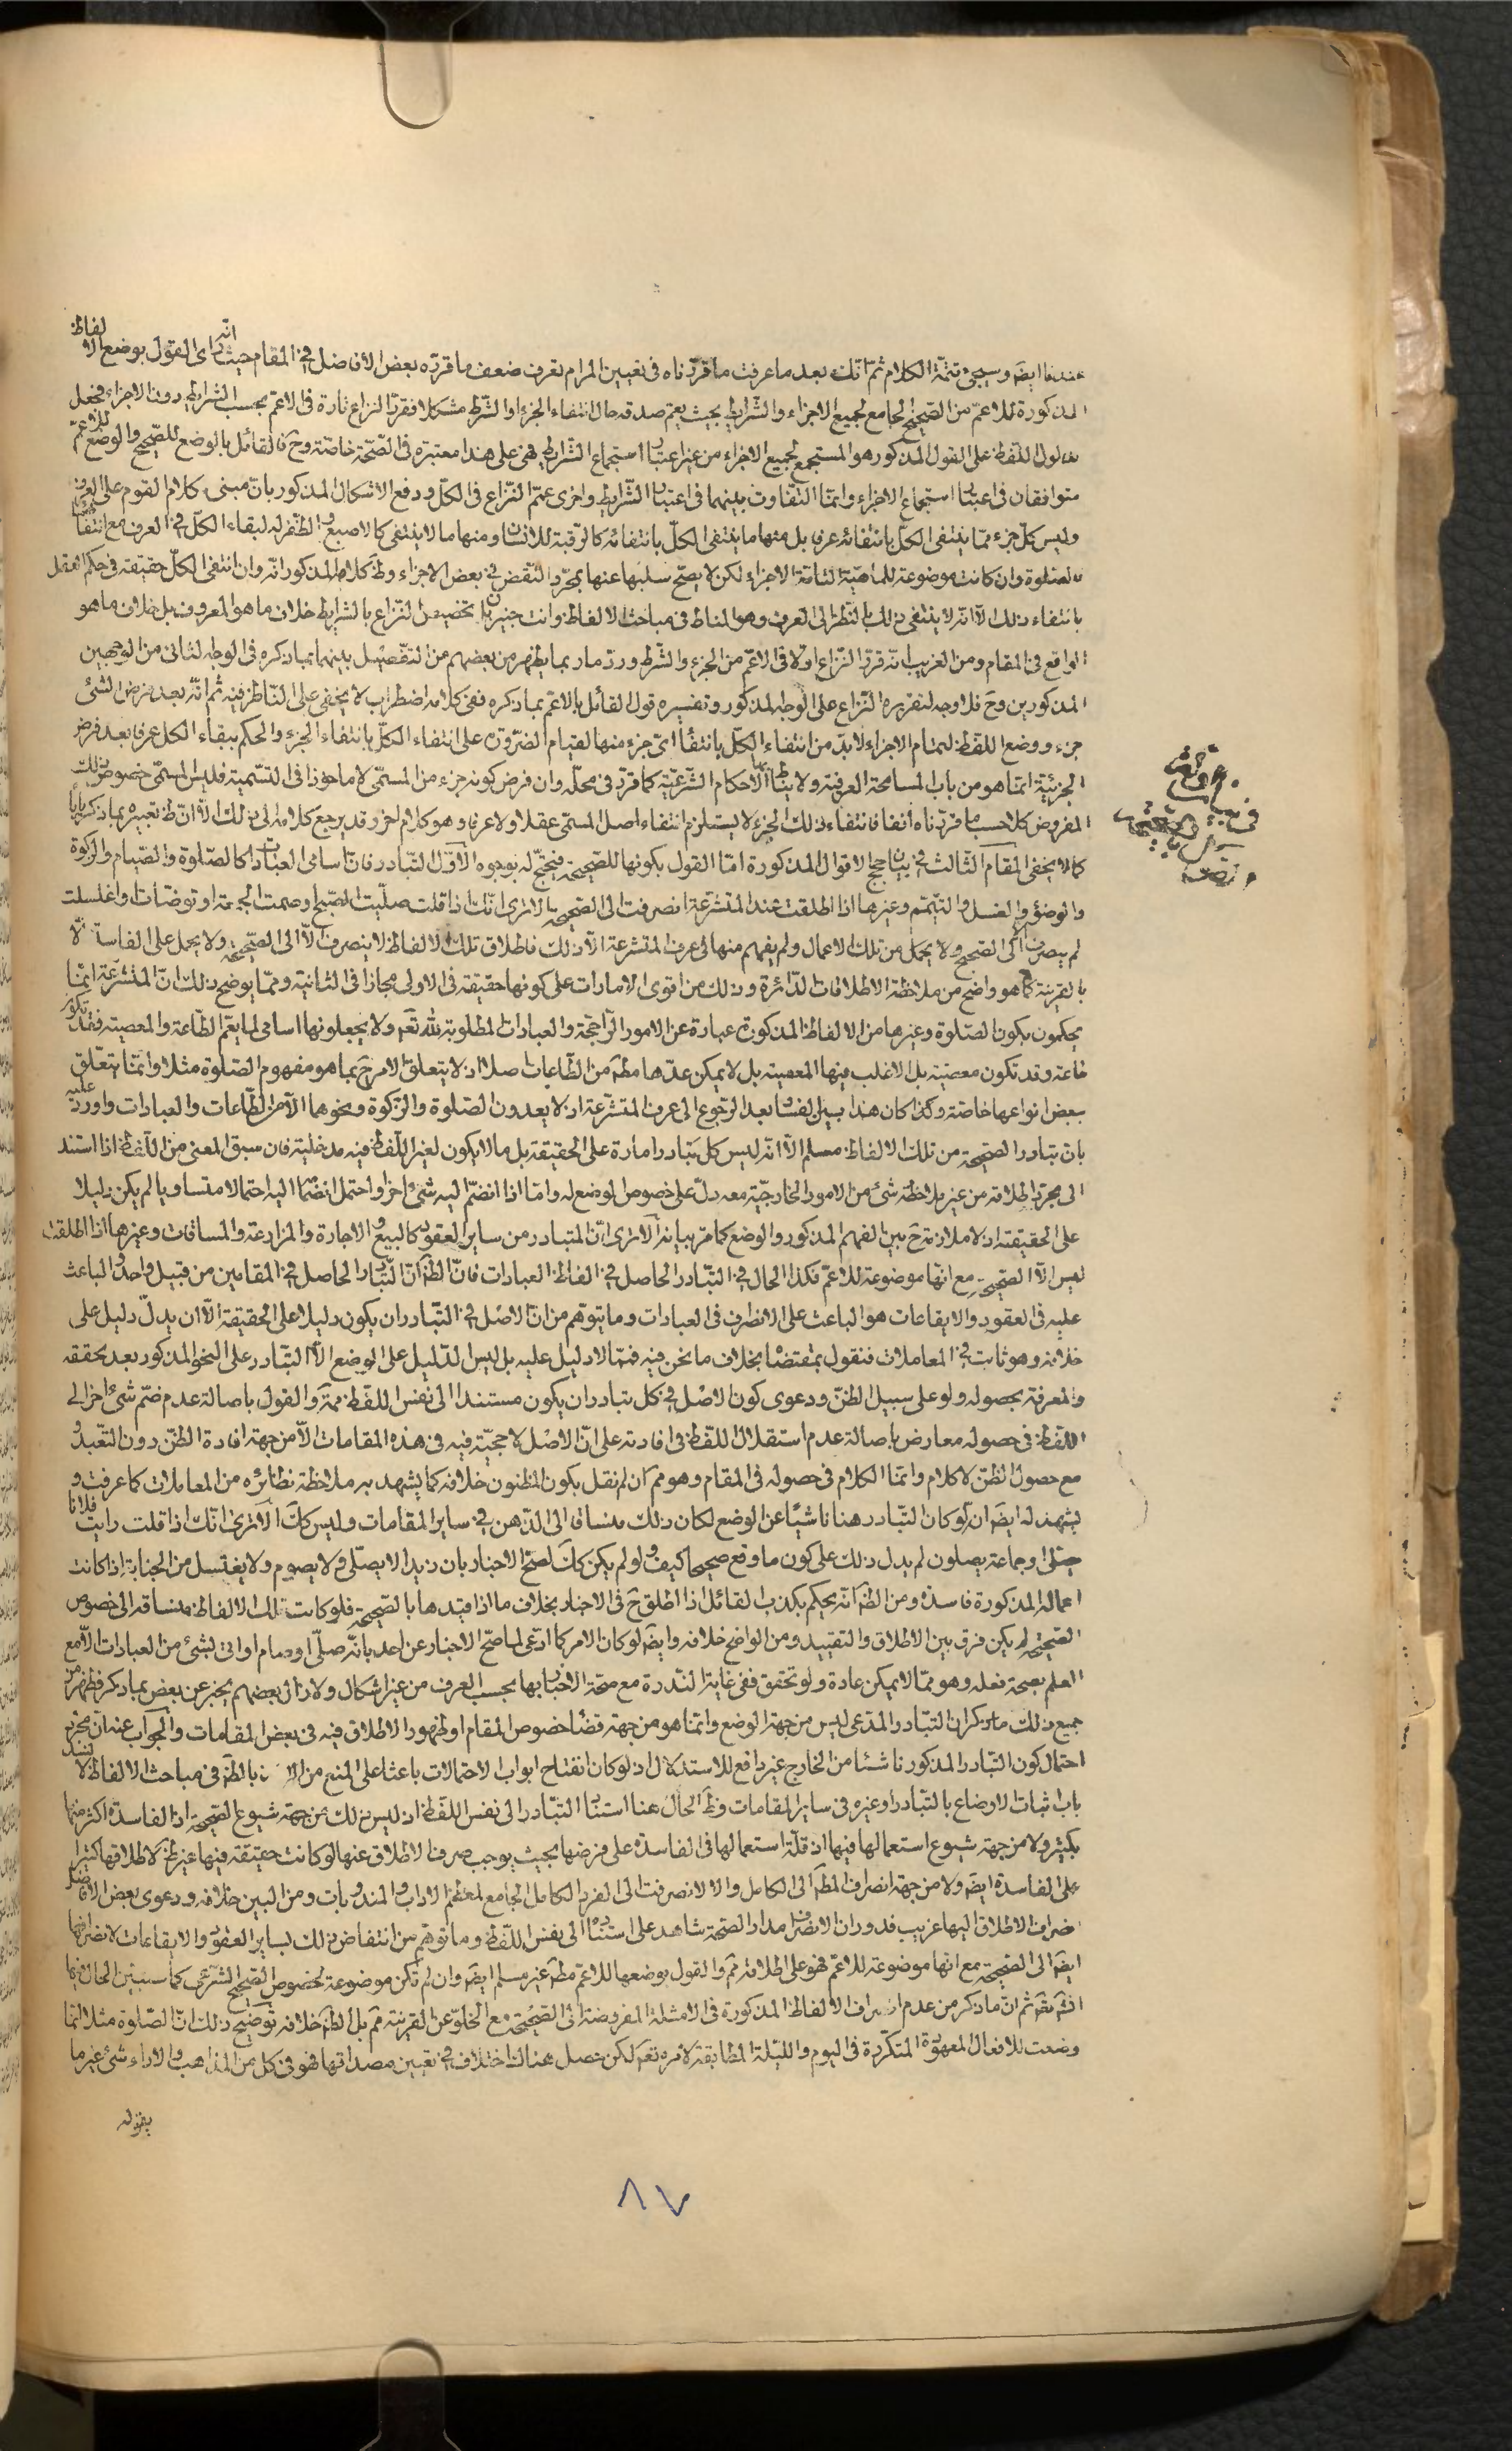 عندنا ايضَ وسيجئ تتمّة الكلام ثمّ انّك بعد ما عرفت ما قرّرناه فى تعيين المرام تعرف ضعف ما قرّره بعض الافاضل في المقام حيث انّه راى القول بوضع الالفاظ
المذكورة للاعمّ من الصّحيح الجامع لجميع الاجزاء والشّرايط بحيث يعمّ صدقه حال انتفاء الجزء او الشّرط مشكلا فقرّر النزاع تارة فى الاعمّ بحسب الشرايط دون الاجزاء فجعل
مدلول اللّفظ على القول المذكور هو المستجمع لجميع الاجزاء من غير اعتبار استجماع الشّرايط فهى على هذا معتبرة فى الصّحّة خاصّة وحَ فالقائل بالوضع للصّحيح والوضع للاعمّ
متوافقان فى اعتبار استجماع الاجزاء وانّما التّفاوت بينهما فى اعتبار الشّرايط واخرى عمّم النّزاع فى الكلّ ودفع الاشكال المذكور بانّ مبنى كلام القوم على العرف
وليس كلّ جزء ممّا ينتفى الكلّ بانتفائه عرفا بل منها ما ينتفى الكلّ بانتفائه كالرّقبة للانسان ومنها ما لا ينتفى كالاصبع والظّفر له لبقاء الكلّ في العرف مع انتفائه
فالصّلوة وان كانت موضوعة للماهيّة التامّة الاجزاء لكن لا يصحّ سلبها عنها بمجرّد النّقض فى بعض الاجزاء وظَ كلامه المذكور انّه وان انتفى الكلّ حقيقة فى حكم العقل
بانتفاء ذلك الّا انّه لا ينتفى ذلك بالنّظر الى العرف وهو المناط فى مباحث الالفاظ وانت خبير بان تخصيص النّزاع بالشرايط خلاف ما هو المعروف بل خلاف ما هو
الواقع فى المقام ومن الغريب انّه قرّر النّزاع اولا فى الاعمّ من الجزء والشّرط وردّ ما ربما يظهر من بعضهم من التّفصيل بينهما بما ذكره فى الوجه الثانى من الوجهين
المذكورين وحَ فلا وجه لتقريره النّزاع على الوجه المذكور وتفسيره قول القائل بالاعمّ بما ذكره ففى كلامه اضطراب لا يخفى على النّاظر فيه ثم انّه بعد فرض الشئ
جزء ووضع اللّفظ لتمام الاجزاء لا بدّ من انتفاء الكلّ بانتفاء اىّ جزء منها لقيام الضّرورة على انتفاء الكلّ بانتفاء الجزء والحكم ببقاء الكلّ عرفا بعد فرض
الجزئيّة انّما هو من باب المسامحة العرفيّة ولا يناط بها الاحكام الشّرعيّة كما قرّر فى محلّه وان فرض كونه جزء من المسمّى لا ماخوذا فى التّسمية فليس المسمّى خصوص ذلك
المفروض كلا حسب ما قرّرناه انفا فانتفاء ذلك الجزء لا يستلزم انتفاء اصل المسمّى عقلا ولا عرفا وهو كلام اخر وقد يرجع كلامه الى ذلك الّا انّ ظَ تعبيره بما ذكر ياباه
كما لا يخفى المقام الثّالث في بيان حجج الاقوال المذكورة امّا القول بكونها للصّحيحة فيحتجّ له بوجوه الاوّل التّبادر فانّ اسامى العبادات كالصّلوة والصّيام والزكوة
والوضوء والغسل والتيمّم وغيرها اذا اطلقت عند المتشرّعة انصرفت الى الصّحيحة الا ترى انّك اذا قلت صلّيت الصّبح وصمت الجمعة او توضّات او اغتسلت
لم ينصرف الّا الى الصّحيح ولا يحمل من تلك الاعمال ولم يفهم منها فى عرف المتشرعة الّا ذلك فاطلاق تلك الالفاظ لا ينصرف الّا الى الصّحيحة ولا يحمل على الفاسدة الّا
بالقرينة كما هو واضح من ملاحظة الاطلاقات الدّائرة وذلك من اقوى الامارات على كونها حقيقة فى الاولى مجازا فى الثّانية وممّا يوضح ذلك انّ المتشرّعة انّما
يحكمون بكون الصّلوة وغيرها من الالفاظ المذكورة عبارة عن الامور الرّاجحة والعبادات المطلوبة للّه تعَ ولا يجعلونها اسامى لما يعمّ الطّاعة والمعصية فقد تكون
طاعة وقد تكون معصية بل الاغلب فيها المعصية بل لا يمكن عدّها مطَ من الطّاعات اصلا اذ لا يتعلق الامر حَ بما هو مفهوم الصّلوة مثلا وانّما يتعلّق
ببعض انواعها خاصّة وكذا كان هذا بيّن الفساد بعد الرّجوع الى عرف المتشرّعة اذ لا يعدون الصّلوة والزّكوة ونحوهما الّا من الطّاعات والعبادات واورد عليه
بان تبادر الصّحيحة من تلك الالفاظ مسلم الّا انّه ليس كلّ تبادر امارة على الحقيقة بل ما لا يكون لغير اللّفظ فيه مدخليّة فان سبق المعنى من اللّفظ اذا استند
الى مجرّد اطلاقه من غير ملاحظة شئ من الامور الخارجيّة معه دلّ على خصوص الوضع له وامّا اذا انضمّ اليه شئ اخر او احتمل انضمامه اليه احتمالا متساويا لم يكن دليلا
على الحقيقة اذ لا ملازمة حَ بين الفهم المذكور والوضع كما مرّ بيانه الا ترى انّ المتبادر من ساير العقود كالبيع والاجارة والمزارعة والمساقات وغيرها اذا اطلقت
ليس الّا الصّحيحة مع انّها موضوعة للاعمّ فكذا الحال في التّبادر الحاصل فى الفاظ العبادات فانّ الظَ انّ التّبادر الحاصل في المقامين من قبيل واحد والباعث
عليه فى العقود والايقاعات هو الباعث على الانصراف فى العبادات وما يتوهّم من انّ الاصل في التّبادر ان يكون دليلا على الحقيقة الّا ان يدلّ دليل على
خلافه وهو ثابت فى المعاملات فنقول بمقتضاه بخلاف ما نحن فيه فممّا لا دليل عليه بل ليس الدّليل على الوضع الّا التّبادر على النحو المذكور بعد تحققه
والمعرفة بحصوله ولو على سبيل الظنّ ودعوى كون الاصل فى كل تبادر ان يكون مستندا الى نفس اللّفظ ممنوعة والقول باصالة عدم ضمّ شئ اخر الى
اللّفظ فى حصوله معارض باصالة عدم استقلال اللّفظ فى افادته على انّ الاصل لا حجيّة فيه فى هذه المقامات الّا من جهة افادة الظنّ دون التعبّد و
مع حصول الظنّ لا كلام وانّما الكلام فى حصوله فى المقام وهو ممَ ان لم نقل بكون المظنون خلافه كما يشهد به ملاحظة نظائره من المعاملات كما عرفت و
يشهد له ايضَ ان لو كان التّبادر هنا ناشيئا عن الوضع لكان ذلك منساقا الى الذّهن في ساير المقامات وليس ككَ الا ترى انّك اذا قلت رايت فلانا
يصلّى او جماعة يصلون لم يدل ذلك على كون ما وقع صحيحا كيف ولو لم يكن ككَ لصحّ الاخبار بان زيدا لا يصلّى ولا يصوم ولا يغتسل من الجنابة اذا كانت
اعماله المذكورة فاسدة ومن الظَ انّه يحكم بكذب القائل اذا اطلق حَ فى الاخبار بخلاف ما اذا قيّدها بالصّحيحة فلو كانت تلك الالفاظ منساقة الى خصوص
الصّحيحة لم يكن فرق بين الاطلاق والتقييد ومن الواضح خلافه وايضَ لو كان الامر كما ادّعى لما صحّ الاخبار عن احد بانّه صلّى او صام او اتى بشئ من العبادات الّا مع
العلم بصحة فعله وهو ممّا لا يمكن عادة ولو تحقق ففى غاية النّدرة مع صحّة الاخبار بها بحسب العرف من غير اشكال ولا زال بعضهم يخبر عن بعض بما ذكر فظهر من
جميع ذلك ما ذكر ان التّبادر المدّعى ليس من جهة الوضع وانّما هو من جهة قضاء خصوص المقام او لظهور الاطلاق فيه فى بعض المقامات والجواب عنه انّ مجرّد
احتمال كون التّبادر المذكور ناشئا من الخارج غير دافع للاستدلال اذ لو كان انفتاح ابواب الاحتمالات باعثا على المنع من بالظَ فى مباحث الالفاظ لانسد
باب اثبات الاوضاع بالتّبادر وغيره فى ساير المقامات وظَ الحال هنا استناد التّبادر الى نفس اللّفظ اذ ليس ذلك من جهة شيوع الصّحيحة اذ الفاسدة اكثر منها
بكثير ولا من جهة شيوع استعمالها فيها اذ قلّة استعمالها فى الفاسدة على فرضها بحيث يوجب صرف الاطلاق عنها لو كانت حقيقة فيها غير ظَ لاطلاقها كثيرا
على الفاسدة ايضَ ولا من جهة انصراف المطَ الى الكامل والّا لانصرفت الى الفرد الكامل الجامع لمعظم الاداب والمندوبات ومن البيّن خلافه ودعوى بعض الافاضل
انصراف الاطلاق اليها غريب فدوران الانصراف مدار الصّحة شاهد على استناده الى نفس اللّفظ وما توهّم من انتقاض ذلك بساير العقود والايقاعات لانصرافها
ايضَ الى الصّحيحة مع انها موضوعة للاعمّ فهو على اطلاقه ممَ والقول بوضعها للاعمّ مطَ غير مسلم ايضَ وان لم تكن موضوعة لخصوص الصّحيح الشّرعى كما سيبيّن الحال فيها
انشَ تعَ ثم انّ ما ذكر من عدم انصراف الالفاظ المذكورة فى الامثلة المفروضة الى الصّحيحة مع الخلوّ عن القرينة ممَ بل الظَ خلافه توضيح ذلك انّ الصّلوة مثلا انّما
وضعت للافعال المعهودة المتكرّرة فى اليوم واللّيلة المطابقة لامره تعَ لكن حصل هناك اختلاف في تعيين مصداقها فهو فى كل من المذاهب والاراء شئ غير ما
يقوله
٨٧